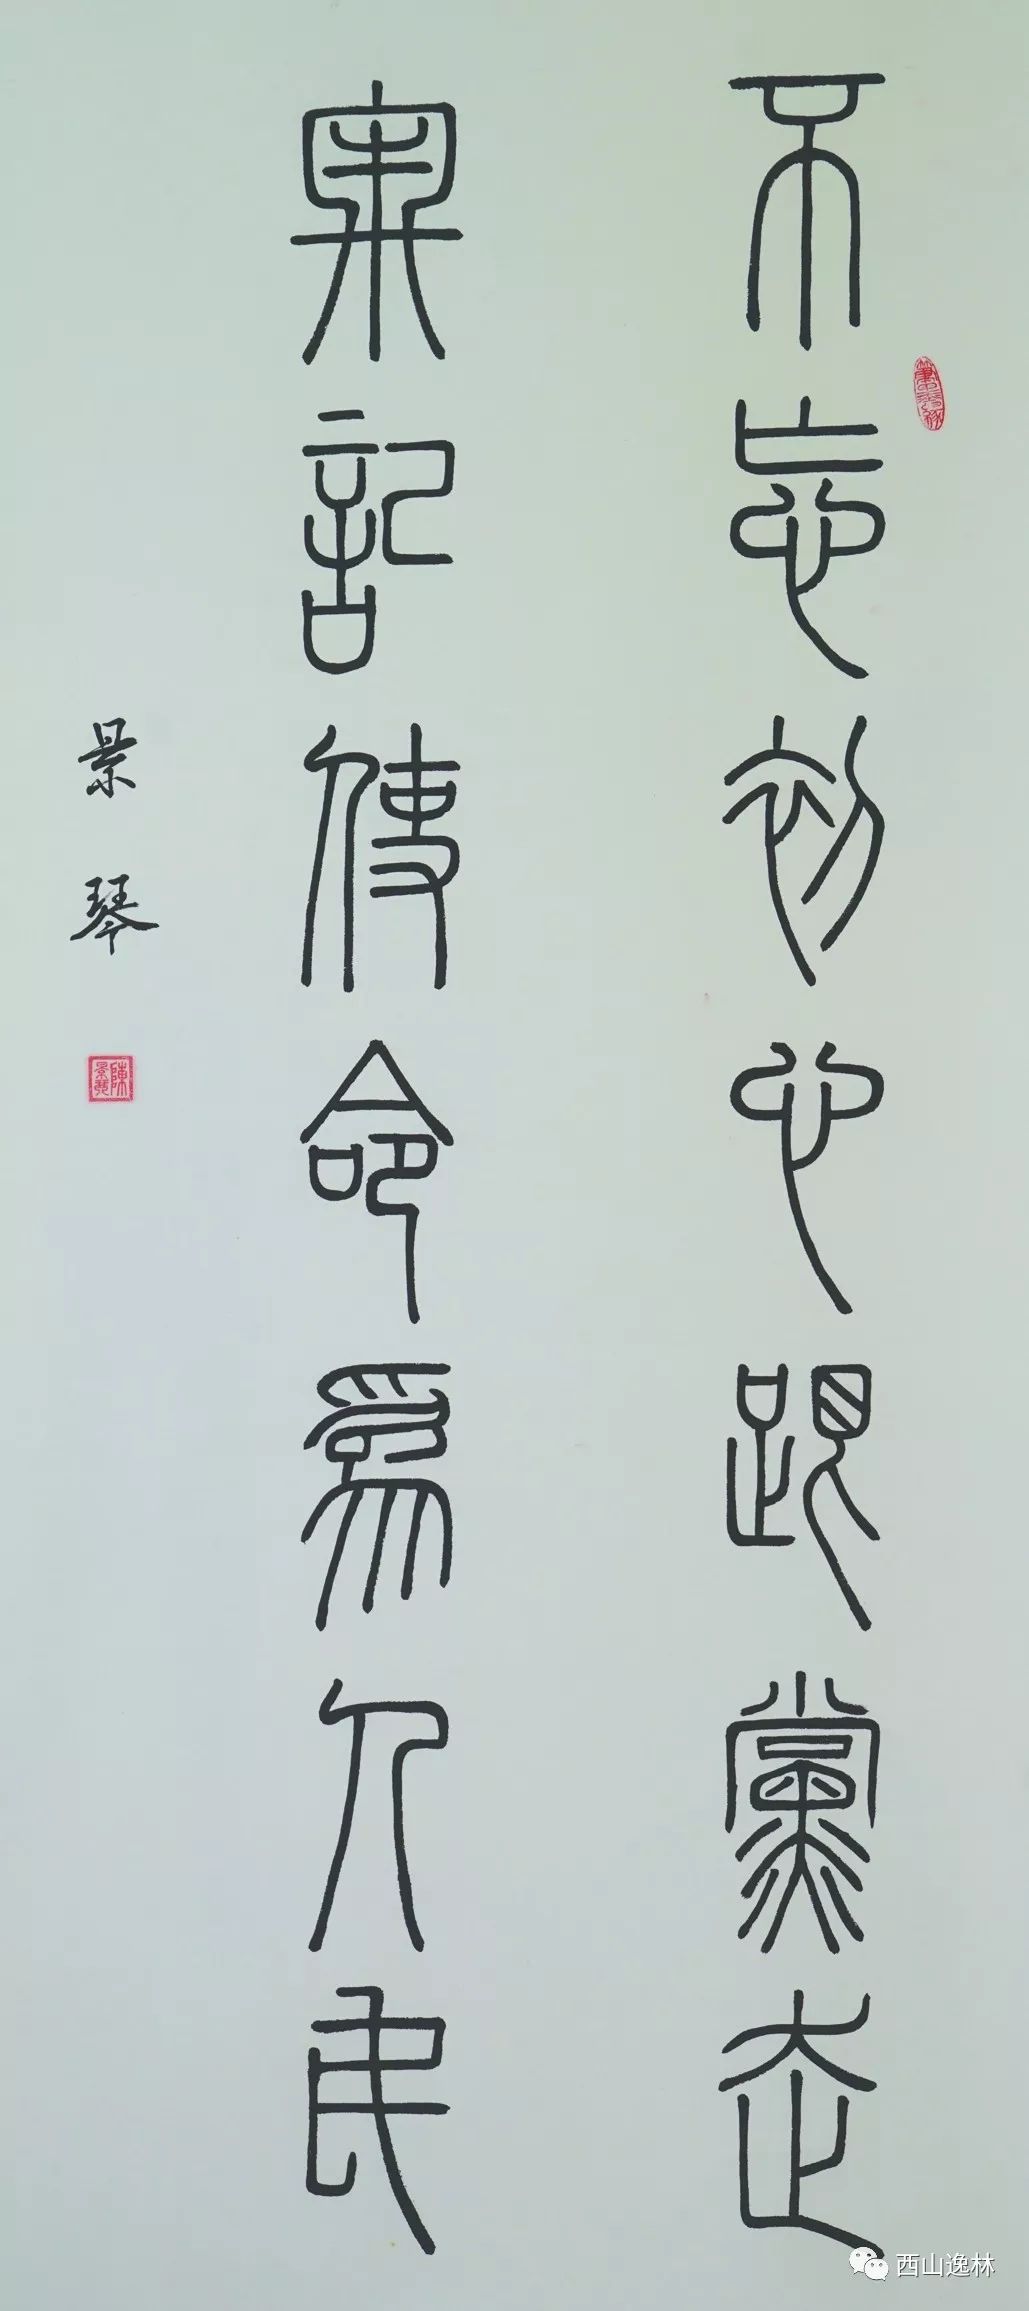 不忘初心跟黨走
牢記使命爲人民
景琴
陳景琴
西山逸林